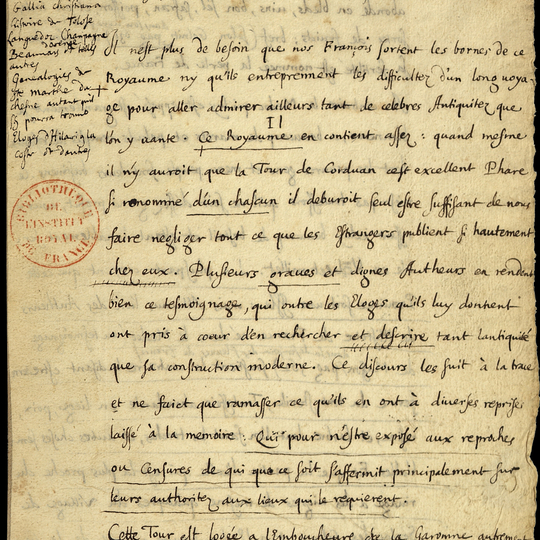 Gallia christiana
histoire de Tolose
Languedoc Champagne
Beauvais de telles
autres
Genealogies de
Ste marthe du
chesne autant quil
s'en pourra trouver
Eloges d'Hilarion de
coste et dautres
Il n'est plus de besoin que nos François sortent les bornes de ce
Royaume ny qu'ils entreprennent les difficultez d'un long voya-
ge pour aller admirer ailleurs tant de celebres Antiquitez que
lon y vante. Ce Royaume en contient assez : quand mesme
Il
il n'y auroit que la Tour de Corduan cest excellent Phare
si renommé d'un chascun il deburoit seul estre suffisant de nous
faire negliger tout ce que les Estrangers publient si hautement
chez eux. Plusieurs graves et dignes Autheurs en rendent
bien ce tesmoignage, qui outre les Eloges qu'ils luy donnent
ont pris à coeur d'en rechercher et descrire tant lantiquité
que sa construction moderne. Ce discours les suit à la trace
et ne faict que ramasser ce qu'ils en ont à diverses reprises
laissé à la memoire : Qui pour n'estre exposé aux reproches
ou Censures de qui que ce soit s'affermit principalement sur
leurs authoritez aux lieux qui le requierent.
Cette Tour est logée a l'Emboucheure de la Garonne autrement
BIBLIOTHÈQUE
DE
L'INSTITUT
ROYAL
DE FRANCE